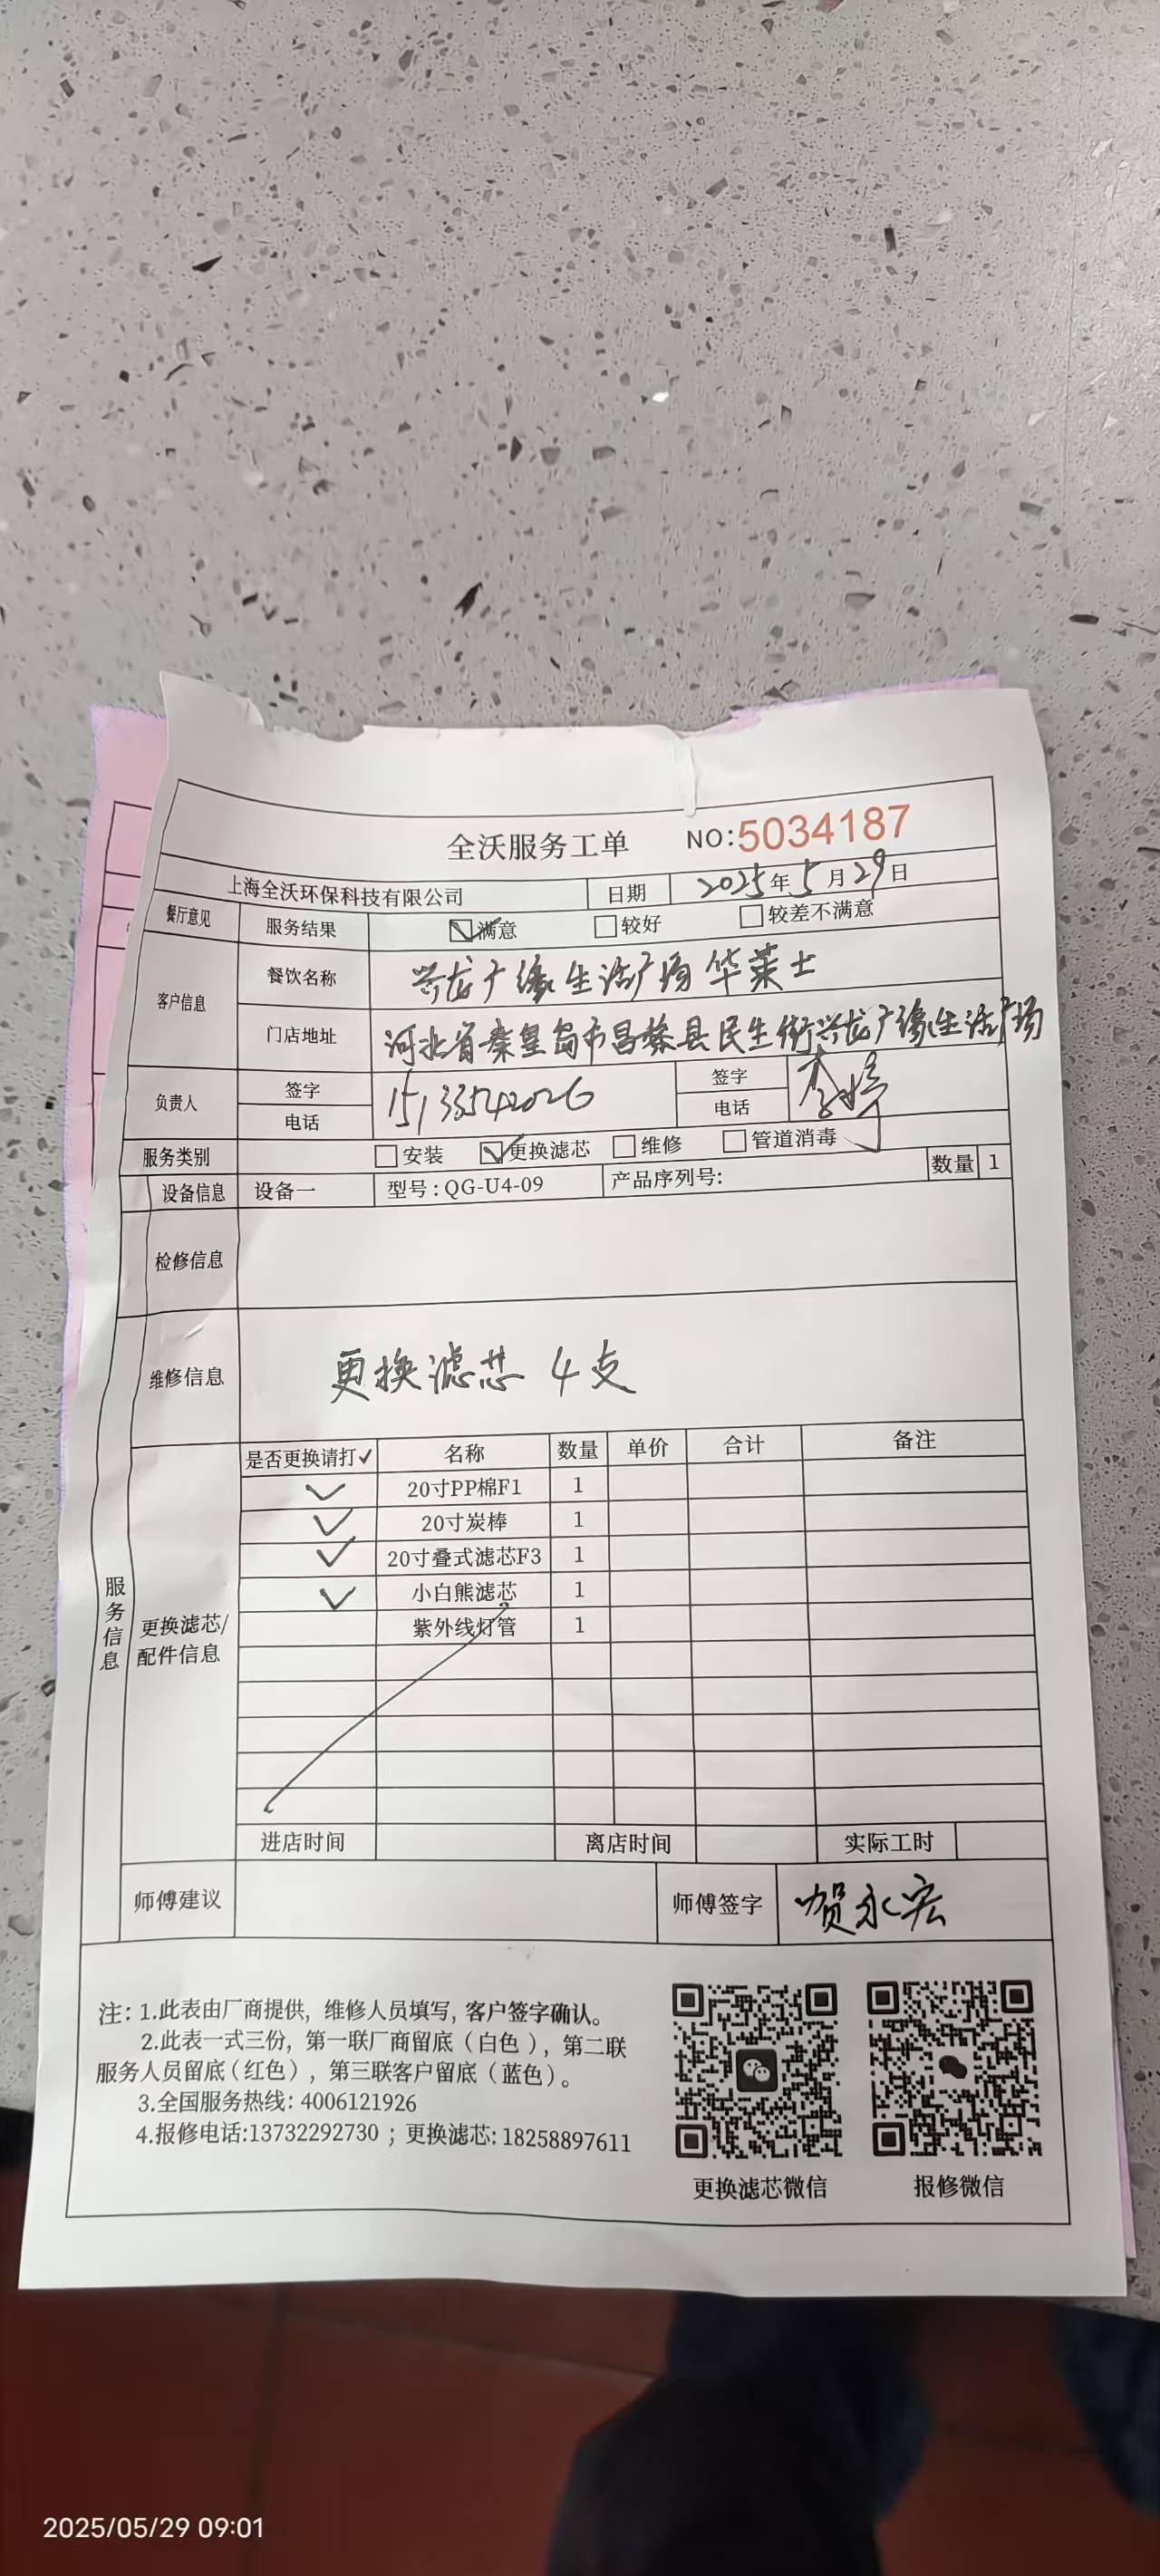 全沃服务工单 NO:5034187
上海全沃环保科技有限公司 日期 2025年5月29日
餐厅意见 服务结果 满意 较好 较差不满意
客户信息 餐饮名称 兴龙广缘生活广场华莱士
门店地址 河北省秦皇岛市昌黎县民生街兴龙广缘生活广场
负责人 签字 15133542026 签字 李婷
电话 电话
服务类别 安装 更换滤芯 维修 管道消毒
设备信息 设备一 型号:QG-U4-09 产品序列号: 数量 1
检修信息
维修信息 更换滤芯 4支
服务信息
更换滤芯/配件信息
是否更换请打✓ 名称 数量 单价 合计 备注
✓ 20寸PP棉F1 1
✓ 20寸炭棒 1
✓ 20寸叠式滤芯F3 1
✓ 小白熊滤芯 1
紫外线灯管 1
进店时间 离店时间 实际工时
师傅建议 师傅签字 贺永宏
注: 1.此表由厂商提供, 维修人员填写, 客户签字确认。
2.此表一式三份, 第一联厂商留底(白色), 第二联
服务人员留底(红色), 第三联客户留底(蓝色)。
3.全国服务热线: 4006121926
4.报修电话:13732292730 ; 更换滤芯: 18258897611
更换滤芯微信 报修微信
2025/05/29 09:01